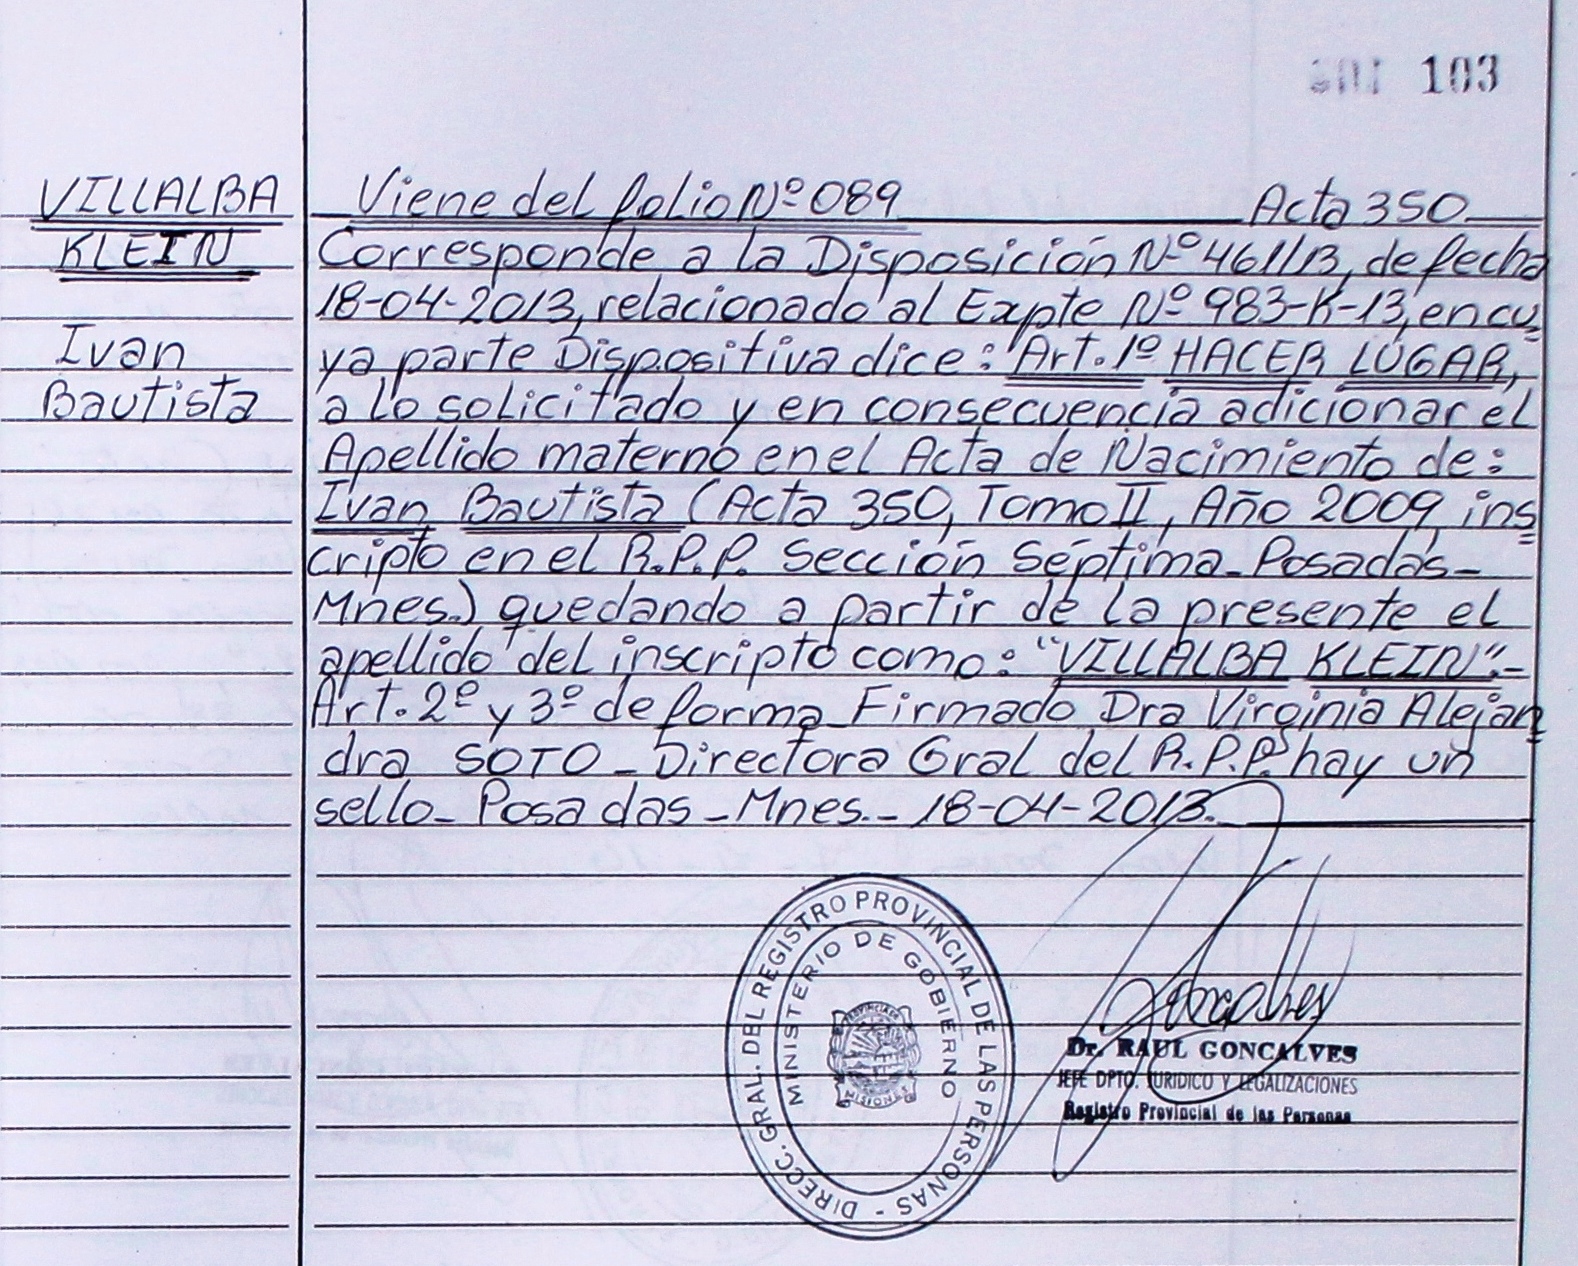 103
VILLALBA
KLEIN
Ivan
Bautista
Viene del folio Nº 089 Acta 350
Corresponde a la Disposición Nº 461/13, de fecha
18-04-2013, relacionado al Expte Nº 983-K-13, en cu
ya parte Dispositiva dice: Art. 1º HACER LUGAR,
a lo solicitado y en consecuencia adicionar el
Apellido materno en el Acta de Nacimiento de:
Ivan Bautista (Acta 350, Tomo II, Año 2009, ins
cripto en el R.P.P. Sección Séptima - Posadas -
Mnes.) quedando a partir de la presente el
apellido del inscripto como: "VILLALBA KLEIN".-
Art. 2º y 3º de forma - Firmado Dra Virginia Alejan
dra SOTO - Directora Gral del R.P.P. hay un
sello - Posadas - Mnes. - 18-04-2013.
DIRECC. GRAL. DEL REGISTRO PROVINCIAL DE LAS PERSONAS -
MINISTERIO DE GOBIERNO
MISIONES
Dr. RAUL GONCALVES
JEFE DPTO. JURIDICO Y LEGALIZACIONES
Registro Provincial de las Personas